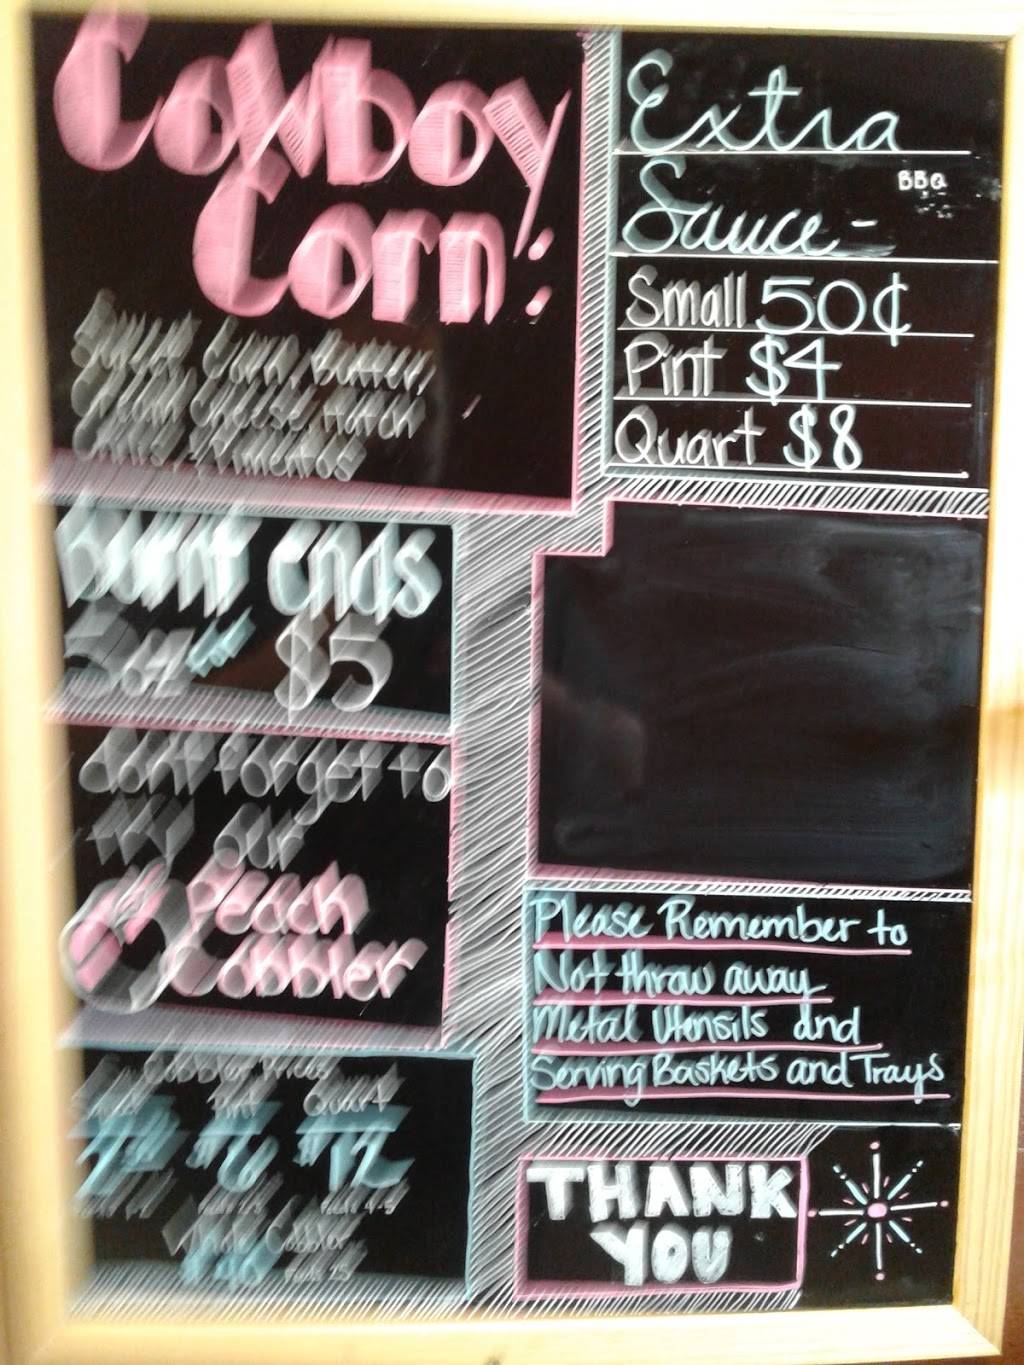 Cowboy
Corn:
Sweet Corn, butter,
Cream Cheese,
burnt ends
5oz $5
dont forget to
try our
Peach
Cobbler
Cobbler Prices
Small Pint Quart
6 12
Whole Cobbler
$40
Extra
BBQ
Sauce-
Small 50¢
Pint $4
Quart $8
Please Remember to
Not throw away
Metal Utensils and
Serving Baskets and Trays
THANK
YOU